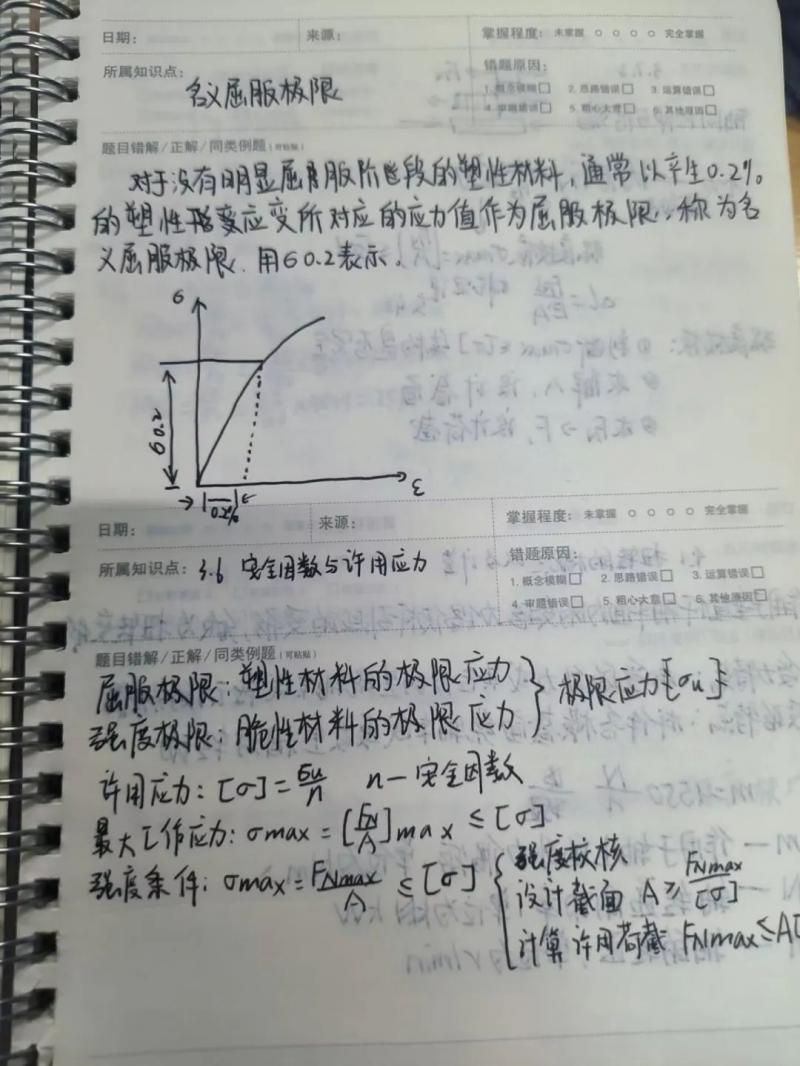 日期： 来源： 掌握程度： 未掌握 ○ ○ ○ ○ 完全掌握
所属知识点： 名义屈服极限 错题原因：
1. 概念模糊□ 2. 思路错误□ 3. 运算错误□
4. 审题错误□ 5. 粗心大意□ 6. 其他原因□
题目错解/正解/同类例题(可粘贴)
对于没有明显屈服阶段的塑性材料，通常以产生0.2%
的塑性应变所对应的应力值作为屈服极限，称为名
义屈服极限.用σ0.2表示。
σ
σ0.2
ε
0.2%
日期： 来源： 掌握程度： 未掌握 ○ ○ ○ ○ 完全掌握
所属知识点： 3.6 安全因数与许用应力 错题原因：
1. 概念模糊□ 2. 思路错误□ 3. 运算错误□
4. 审题错误□ 5. 粗心大意□ 6. 其他原因□
题目错解/正解/同类例题(可粘贴)
屈服极限：塑性材料的极限应力
强度极限：脆性材料的极限应力 } 极限应力[σu]
许用应力：[σ]=σu/n n—安全因数
最大工作应力：σmax=[FN/A]max≤[σ]
强度条件：σmax=FNmax/A≤[σ] { 强度校核
设计截面 A≥FNmax/[σ]
计算许用荷截 FNmax≤A[